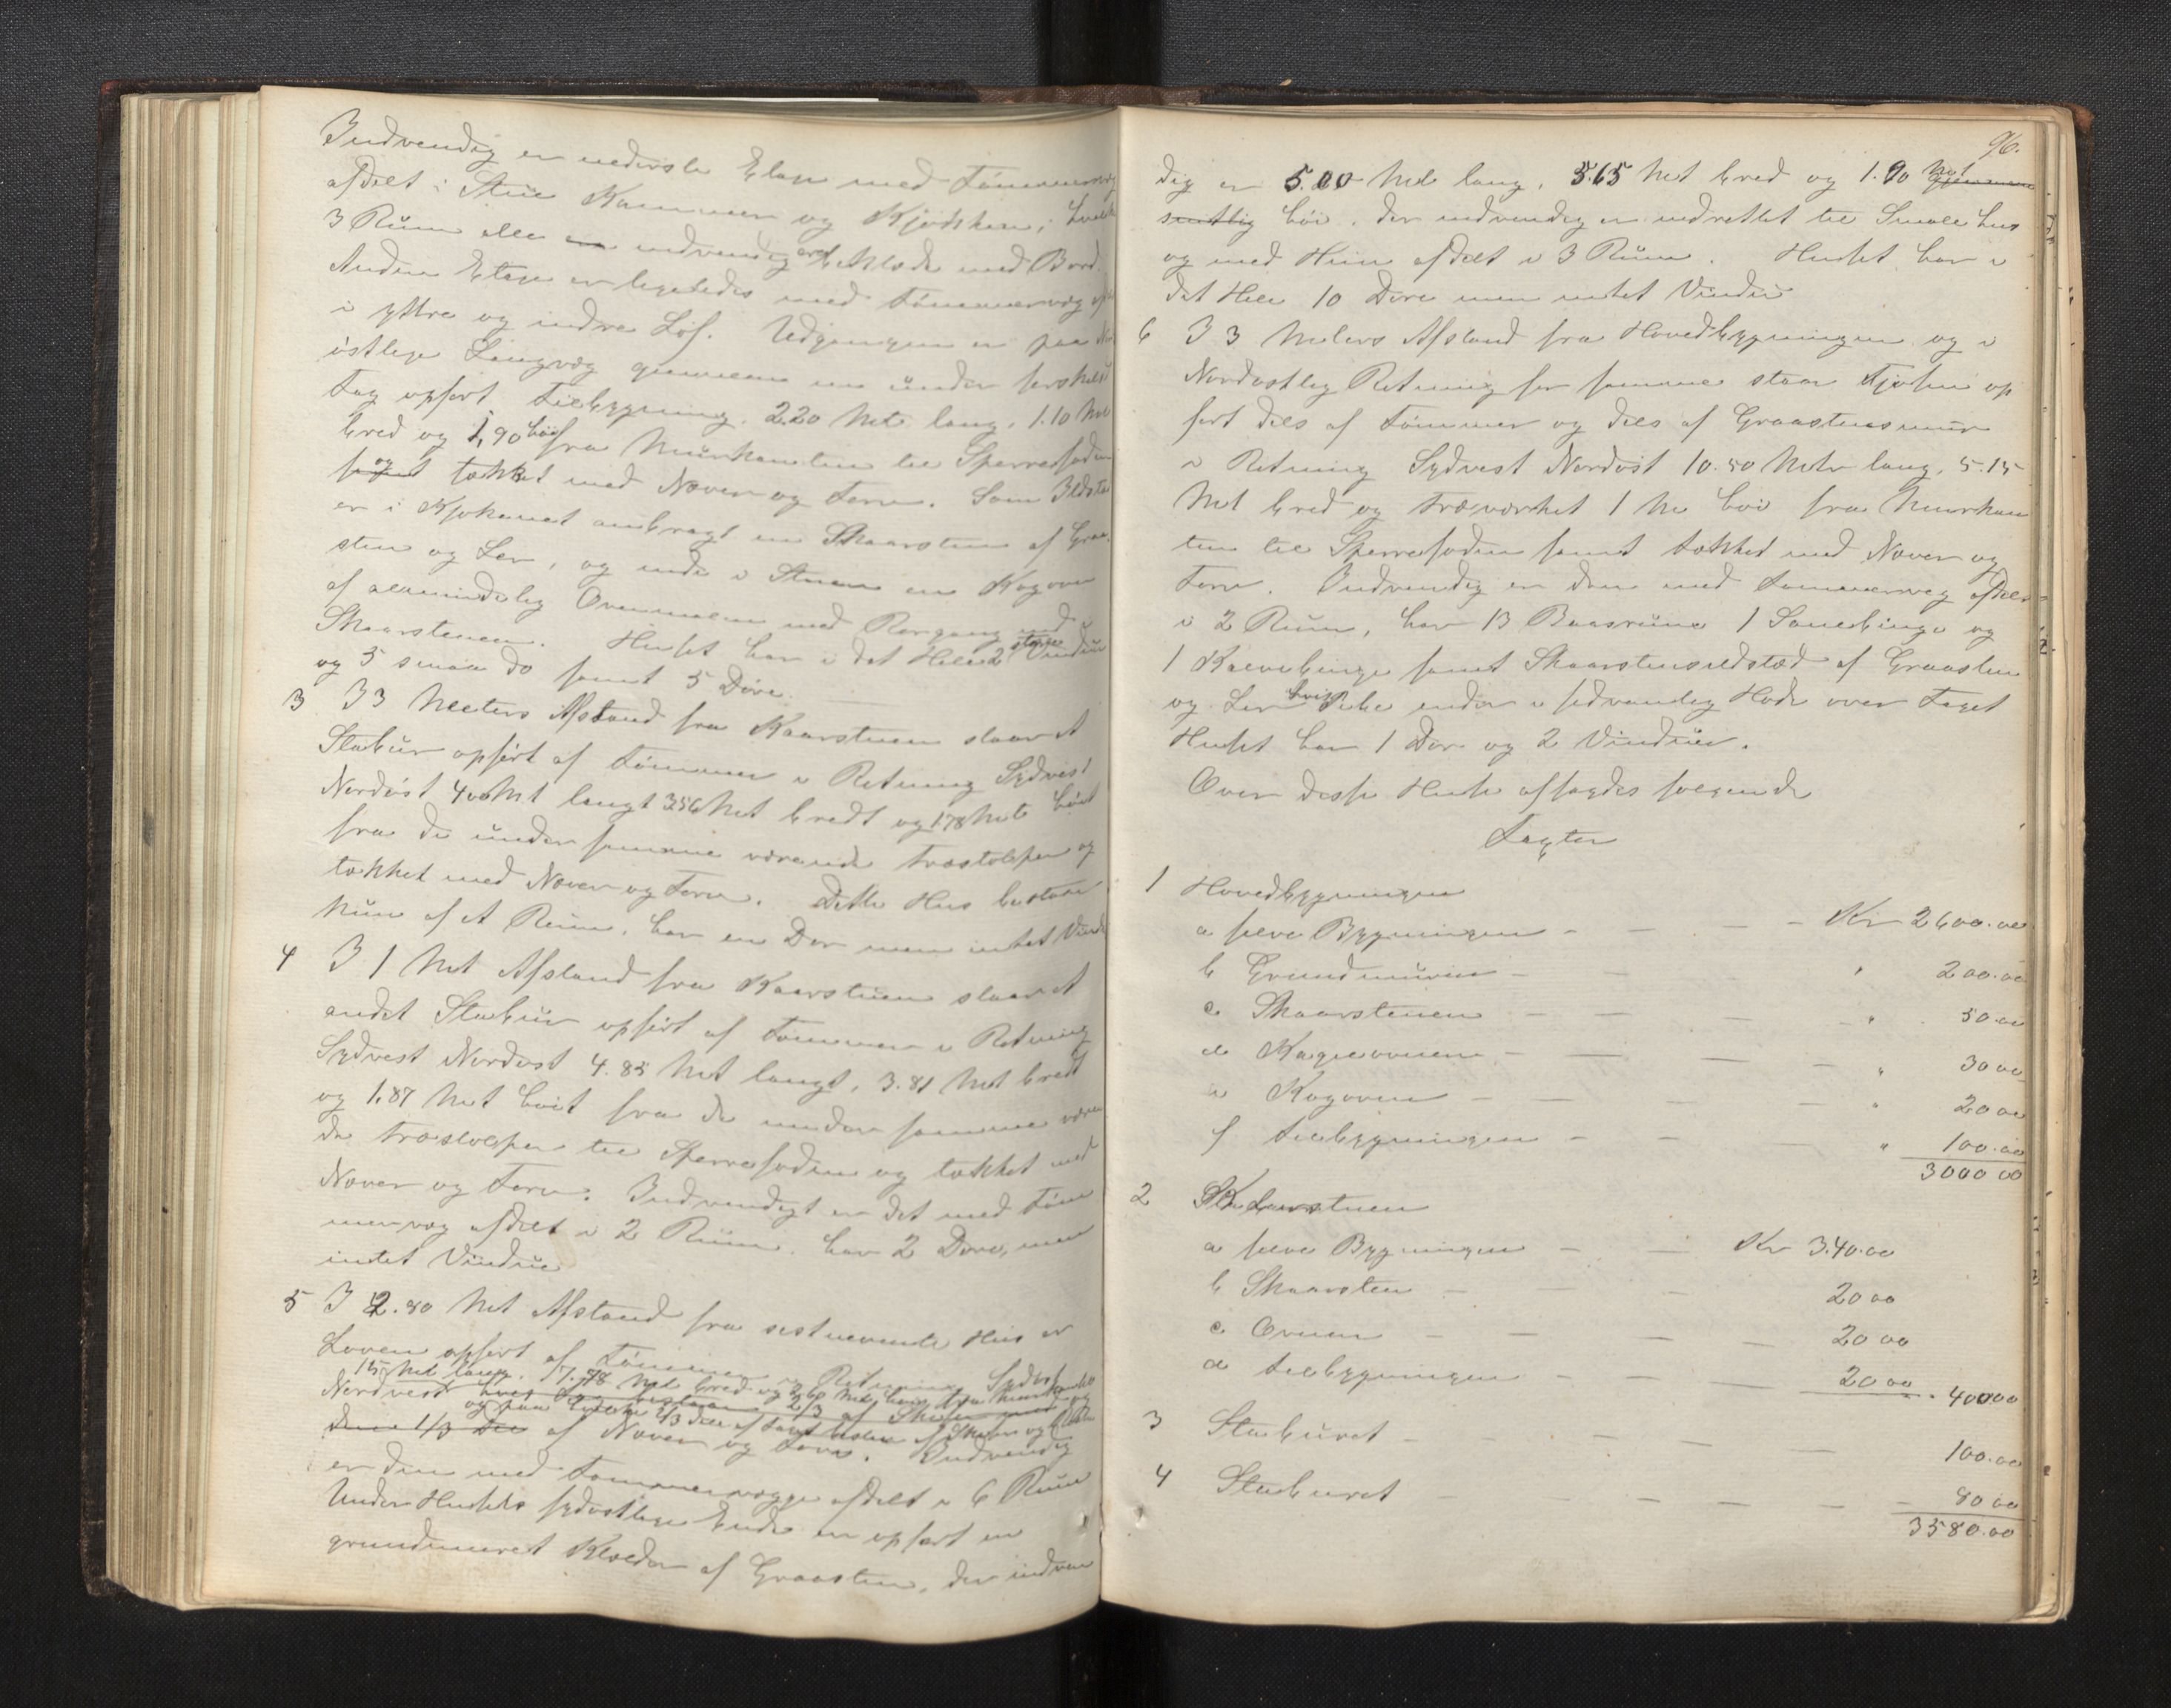 Indvendig er nederste Etage med Tømmervæg
afdelt i Stue Kammer og Kjøkken, i hvilke
3 Rum alle indvendig ere beklædte med Bord.
Anden Etage er ligeledes med Tømmervæg
i yttre og indre Loft. Udgangen er paa
østlige Langvæg gjennem en under
Tag opført Tilbygning. 2.20 Met. lang, 1.10 Met
bred og 1,90 høi fra Murkanten til Sperrefoden
samt og tækket med Næver og Torv. Som Ildsted
er i Kjøkkenet anbragt en Skaarsten af Graa-
sten og Ler, og inde i Stuen en Kogovn
af almindelig Ovnmalm med Rørgang ind
Skaarstenen. Huset har i det Hele 2 store Vinduer
og 5 smaa do samt 5 Døre.
3 I 3 Meters Afstand fra Kaarstuen staar et
Stabur opført af Tømmer i Retning Sydvest
Nordøst 4.00 Met langt 3.56 Met bredt og 1.78 Met høit
fra de under samme værende Træstolper og
tækket med Næver og Torv. Dette Hus bestaar
kun af et Rum, har en Dør men intet Vindu
4 I 1 Met Afstand fra Kaarstuen staar et
andet Stabur opført af Tømmer i Retning
Sydvest Nordøst 4.85 Met langt, 3.81 Met bredt
og 1.87 Met høit fra de under samme væren
de Træstolper til Sperrefoden og tækket med
Næver og Torv. Indvendigt er det med Tøm
mervæg afdelt i 2 Rum, har 2 Døre, men
intet Vindue
5 I 2.80 Met Afstand fra sistnevnte Hus er
Loven opført af Tømmer i Retning Sydøst
15 Met lang, 7.78 Met bred og 2.60 Met høi fra Murkanten
Nordvest hvis Tag bestaar 2/3 af Skifer med
og paa hvilke 2/3 Dele af Taget bestaar af Skifer og
denne 1/3 Del af Næver og Torv. Indvendig
er den med Tømmervægge afdelt i 6 Rum
Under Husets sydøstlige Ende er opført en
grundmuret Kjelder af Graasten, der indven
96.
dig er 5.00 Met lang, 3.65 Met bred og 1.90 Met
høi, der indvendig er indrettet til Smale hus
og med Hun afdelt i 3 Rum. Huset har i
det Hele 10 Døre men intet Vindu
6 I 3 Meters Afstand fra Hovedbygningen og i
Nordostlig Retning for samme staar Fjøsen op
ført dels af Tømmer og dels af Graastensmur
i Retning Sydvest Nordøst 10.50 Metr lang, 5.15
Met bred og Træværket 1 Me høi fra Murkan
ten til Sperrefoden samt tækket med Næver og
Torv. Indvendig er den med Tømmervæg afdelt
i 2 Rum, har 13 Baasrum 1 Sauebinge og
1 Kalvebinge samt Skaarstensildsted af Graasten
og Ler hvis Pibe ender i sedvanlig Høde over Taget
Huset har 1 Dør og 2 Vinduer.
Over disse Huse afsagdes følgende
Taxter
1 Hovedbygningen
a selve Bygningen - - - Kr 2600.00
b Grundmuren - - " 200.00
c Skaarstenen - - - " 50.00
d Kagleovnen - - - " 30 00
e Kogovnen - - - " 20 00
f Tilbygningen - - " 100.00
3000 00
2 Kaarstuen
a selve Bygningen - - Kr 340.00
b Skaarsten - - - 20 00
c Ovnen - - - 20 00
d Tilbygningen - - - 20 00 . 400 00
3 Staburet - - - - 100.00
4 Staburet - - - - 80 00
3580.00